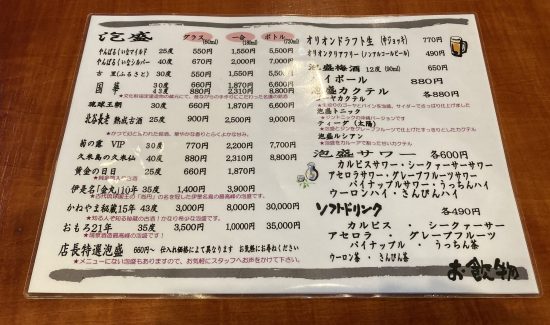 泡盛 グラス(60ml) 一合(180ml) ボトル(720ml)
やんばるくいなマイルド 25度 550円 1,550円 5,500円
やんばるくいなシルバー 40度 670円 2,000円 7,000円
古里(ふるさと) 30度 550円 1,550円 5,500円
国華 30度 660円 1,870円 6,600円
43度 880円 2,310円 8,800円
琉球王朝 30度 660円 1,870円 6,600円
北谷長老 熟成古酒 25度 900円 2,500円
菊の露 VIP 30度 770円 2,200円 7,700円
久米島の久米仙 40度 880円 2,310円 8,800円
黄金の日日 30度 660円 1,870円 6,600円
伊是名「金丸」10年 35度 1,400円 3,900円
かねやま秘蔵15年 43度 3,000円 8,000円 30,000円
知る人ぞ知る秘蔵の古酒!かなり希少な泡盛です!
おもろ21年 35度 3,500円 10,000円 35,000円
店長特選泡盛 660円~ 仕入れ価格によって異なります お気軽にお尋ねください
★メニューにない泡盛もありますので、お気軽にスタッフへお声をかけて下さい。
オリオンドラフト生(中ジョッキ) 770円
オリオンクリアフリー(ノンアルコールビール) 490円
泡盛梅酒 12度(90ml) 650円
ハイボール 880円
泡盛カクテル 各880円
泡盛トニック
★ジントニックの沖縄バージョンです
ティーダ(太陽)
泡盛ルシアン
泡盛サワー 各600円
カルピスサワー・シークァーサーサワー
アセロラサワー・グレープフルーツサワー
パイナップルサワー・うっちんハイ
ウーロンハイ・さんぴんハイ
ソフトドリンク 各490円
カルピス ・ シークァーサー
アセロラ ・ グレープフルーツ
パイナップル ・ うっちん茶
ウーロン茶 ・ さんぴん茶
お飲物